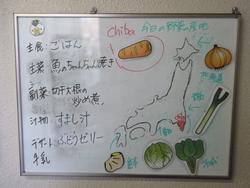 Chiba 今日の野菜の産地
主食: ごはん
主菜: 魚のちゃんちゃん焼き
副菜: 切干大根の炒め煮
汁物 すまし汁
デザート ぶどうゼリー
牛乳
北海道